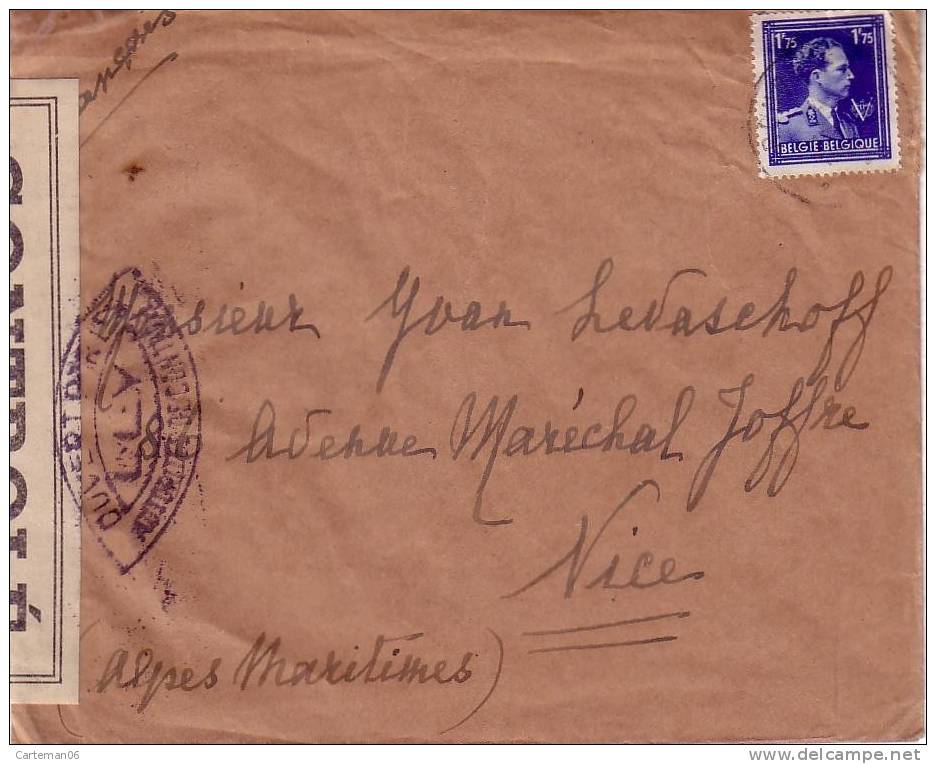 1F75 1F75
BELGIË BELGIQUE
CONTRÔLÉ
OUVERT
Monsieur Yvan Levaschoff
8 Avenue Maréchal Joffre
Nice
(Alpes Maritimes)
Carteman06
www.delcampe.net